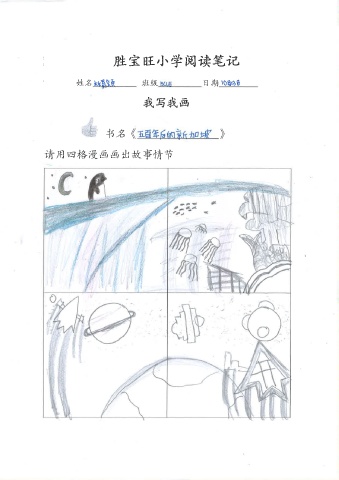 胜宝旺小学阅读笔记
姓名 班级 日期
我写我画
书名《五百年后的新加坡》
请用四格漫画画出故事情节